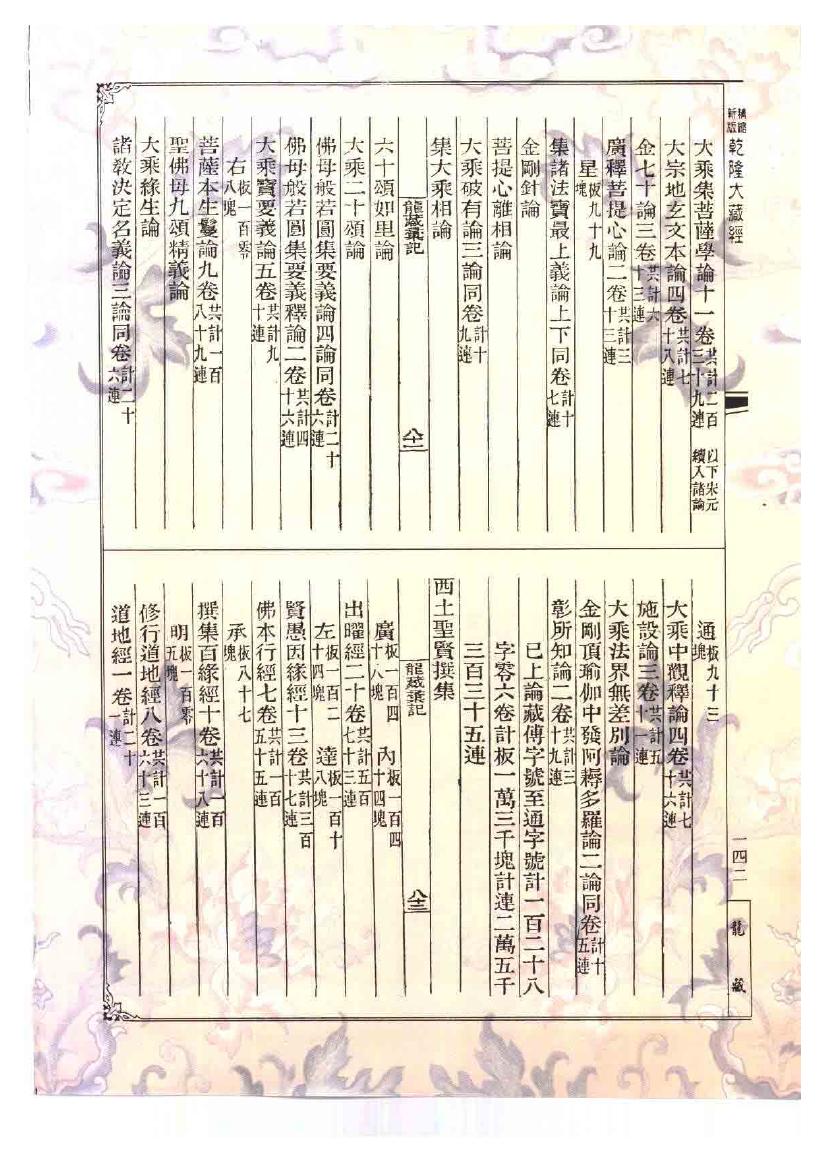 精縮新版 乾隆大藏經
大乘集菩薩學論十一卷共計二百三十九連 以下宋元續入諸論
大宗地玄文本論四卷共計七十八連
金七十論三卷共計六十三連
廣釋菩提心論二卷共計三十三連
星板九十九塊
集諸法寶最上義論上下同卷計十七連
金剛針論
菩提心離相論
大乘破有論三論同卷計十九連
集大乘相論
龍藏彙記 八十二
六十頌如理論
大乘二十頌論
佛母般若圓集要義論四論同卷計二十六連
佛母般若圓集要義釋論二卷共計四十六連
大乘寶要義論五卷共計九十連
右板一百零八塊
菩薩本生鬘論九卷共計一百八十九連
聖佛母九頌精義論
大乘緣生論
諸教決定名義論三論同卷計二十六連
通板九十三塊
大乘中觀釋論四卷共計七十六連
施設論三卷共計五十一連
大乘法界無差別論
金剛頂瑜伽中發阿耨多羅論二論同卷計十五連
彰所知論二卷共計三十九連
已上論藏傳字號至通字號計一百二十八
字零六卷計板一萬三千塊計連二萬五千
三百三十五連
西土聖賢撰集
龍藏彙記 八十三
廣板一百四十八塊 內板一百四十四塊
出曜經二十卷共計五百七十三連
左板一百二十四塊 達板一百十八塊
賢愚因緣經十三卷共計三百十七連
佛本行經七卷共計一百五十五連
承板八十七塊
撰集百緣經十卷共計一百六十八連
明板一百零五塊
修行道地經八卷共計一百六十三連
道地經一卷計二十一連
一四二
龍藏